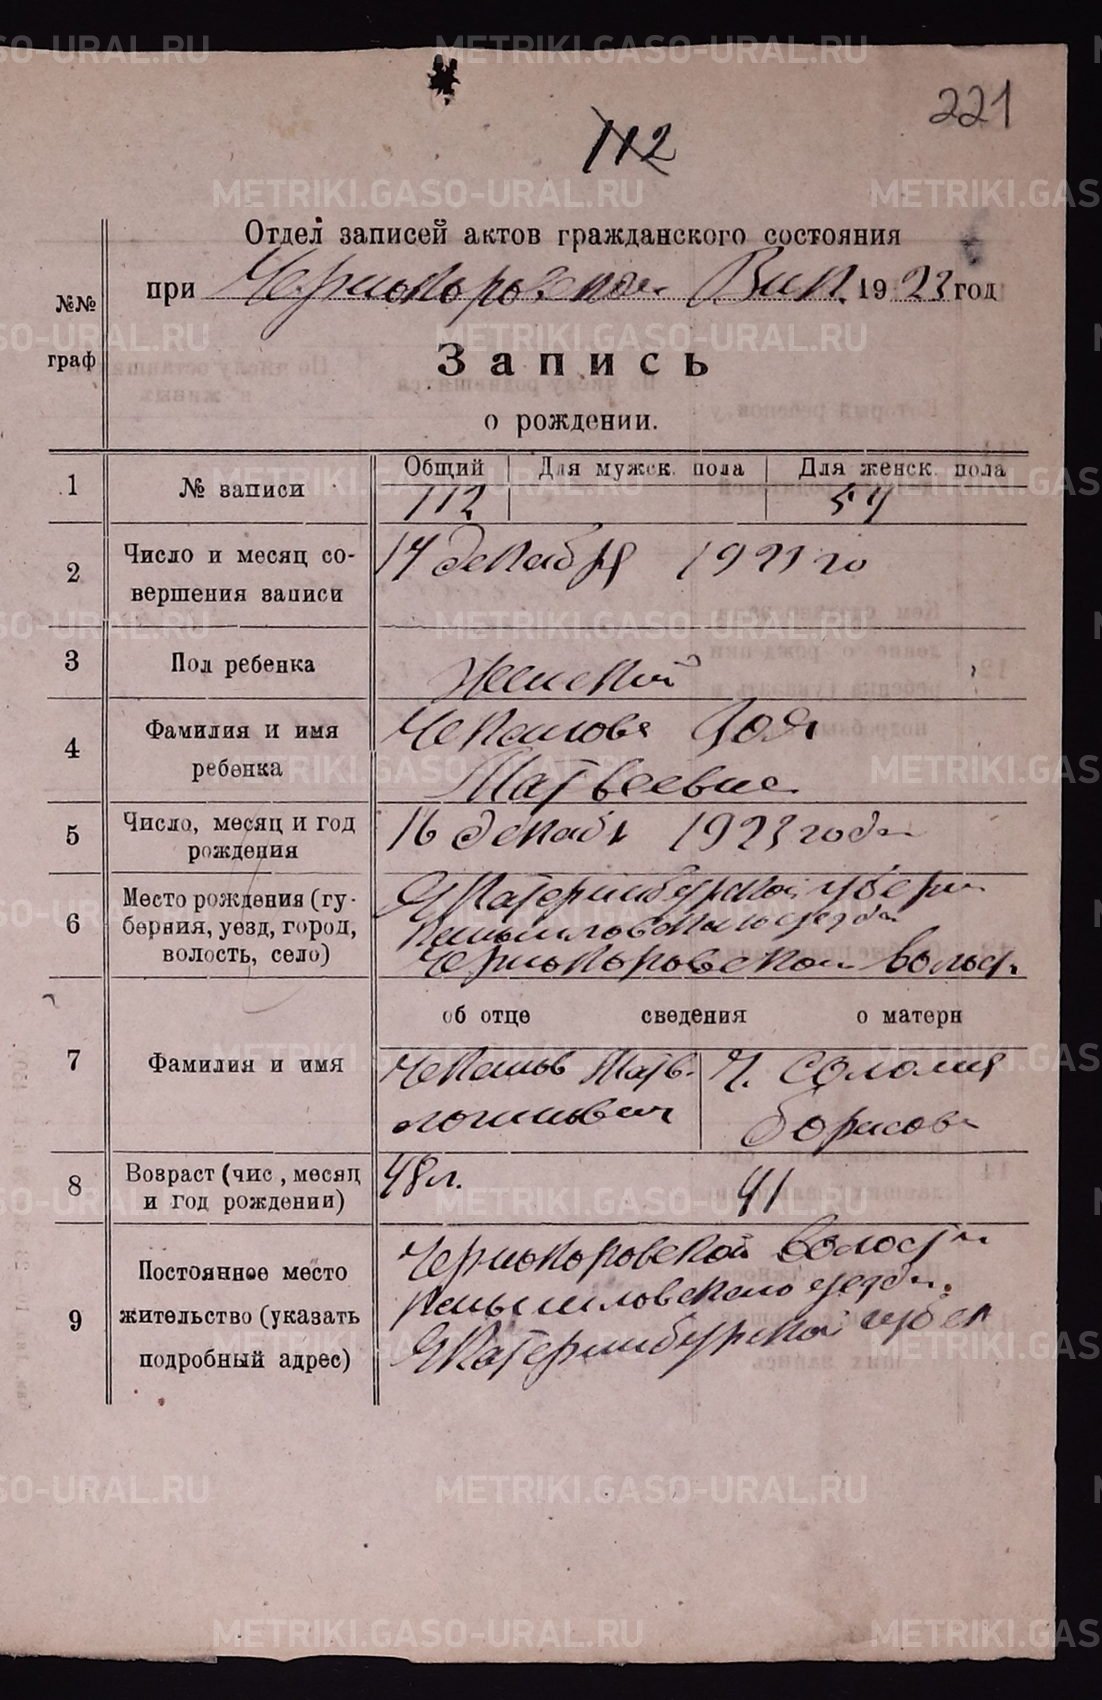 221
112
Отдел записей актов гражданского состояния
при Чернокоровском Вик. 1923 год
№№
граф
Запись
о рождении.
1 № записи
Общий Для мужск. пола Для женск. пола
112 54
2 Число и месяц со-
вершения записи
17 декабря 1923 го
3 Пол ребенка Женской
4 Фамилия и имя
ребенка
Чекашова Зоя
Матвеевна
5 Число, месяц и год
рождения
16 декабр 1923 года
6 Место рождения (гу-
берния, уезд, город,
волость, село)
Екатеринбургской губерн
Камышловского уезда
Чернокоровской волости
7 Фамилия и имя
об отце сведения о матери
Матв. Ч. Соломия
Борисов
8 Возраст (чис, месяц
и год рождении)
48 л. 41
9 Постоянное место
жительство (указать
подробный адрес)
Чернокоровской волости
Камышловского уезда.
Екатеринбургской губер
METRIKI.GASO-URAL.RU